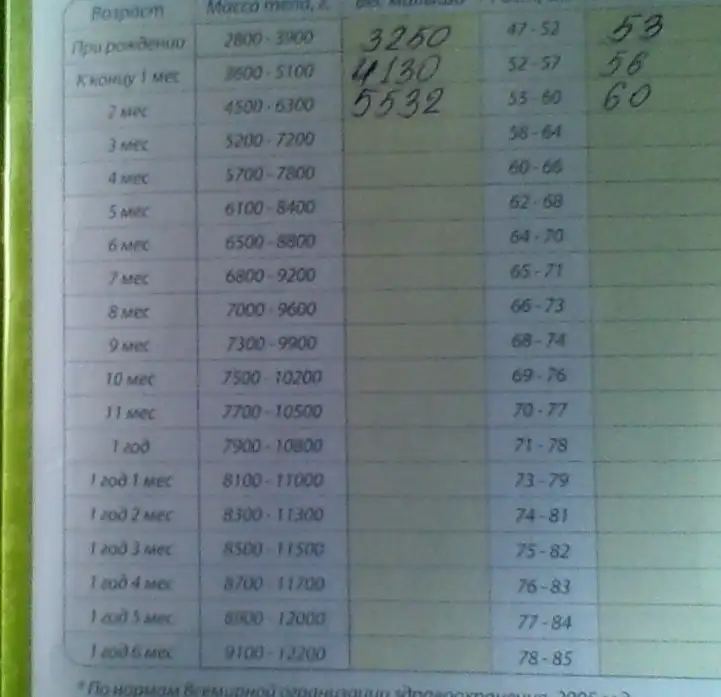 Возраст Масса тела, г.
При рождении 2800 - 3900 3250 47 - 52 53
К концу 1 мес 3600 - 5100 4130 52 - 57 56
2 мес 4500 - 6300 5532 55 - 60 60
3 мес 5200 - 7200 58 - 64
4 мес 5700 - 7800 60 - 66
5 мес 6100 - 8400 62 - 68
6 мес 6500 - 8800 64 - 70
7 мес 6800 - 9200 65 - 71
8 мес 7000 - 9600 66 - 73
9 мес 7300 - 9900 68 - 74
10 мес 7500 - 10200 69 - 76
11 мес 7700 - 10500 70 - 77
1 год 7900 - 10800 71 - 78
1 год 1 мес 8100 - 11000 73 - 79
1 год 2 мес 8300 - 11300 74 - 81
1 год 3 мес 8500 - 11500 75 - 82
1 год 4 мес 8700 - 11700 76 - 83
1 год 5 мес 8900 - 12000 77 - 84
1 год 6 мес 9100 - 12200 78 - 85
* По нормам Всемирной организации здравоохранения